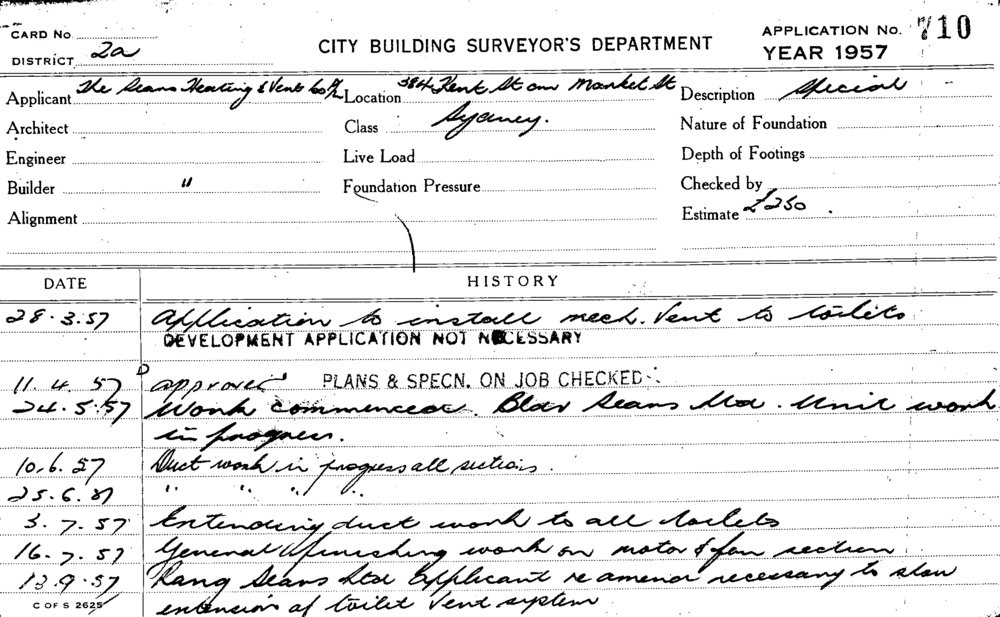 CARD No.
DISTRICT 2a
CITY BUILDING SURVEYOR'S DEPARTMENT
APPLICATION No. 710
YEAR 1957
Applicant The Sears Heating & Vent Co P/L
Location 384 Kent St cnr Market St
Description Special
Architect
Class Sydney.
Nature of Foundation
Engineer
Live Load
Depth of Footings
Builder "
Foundation Pressure
Checked by
Alignment
Estimate £250.
DATE HISTORY
28.3.57 Application to install mech. Vent to toilets
DEVELOPMENT APPLICATION NOT NECESSARY
11.4.57 approved PLANS & SPECN. ON JOB CHECKED
24.5.57 Work commenced. Bldr Sears Ltd. Unit work
in progress.
10.6.57 Duct work in progress all sections.
25.6.57 " " " "
3.7.57 Extending duct work to all toilets
16.7.57 General finishing work on motor & fan section
13.9.57 Rang Sears Ltd applicant re amend necessary to show
extension of toilet Vent system
C OF S 2625